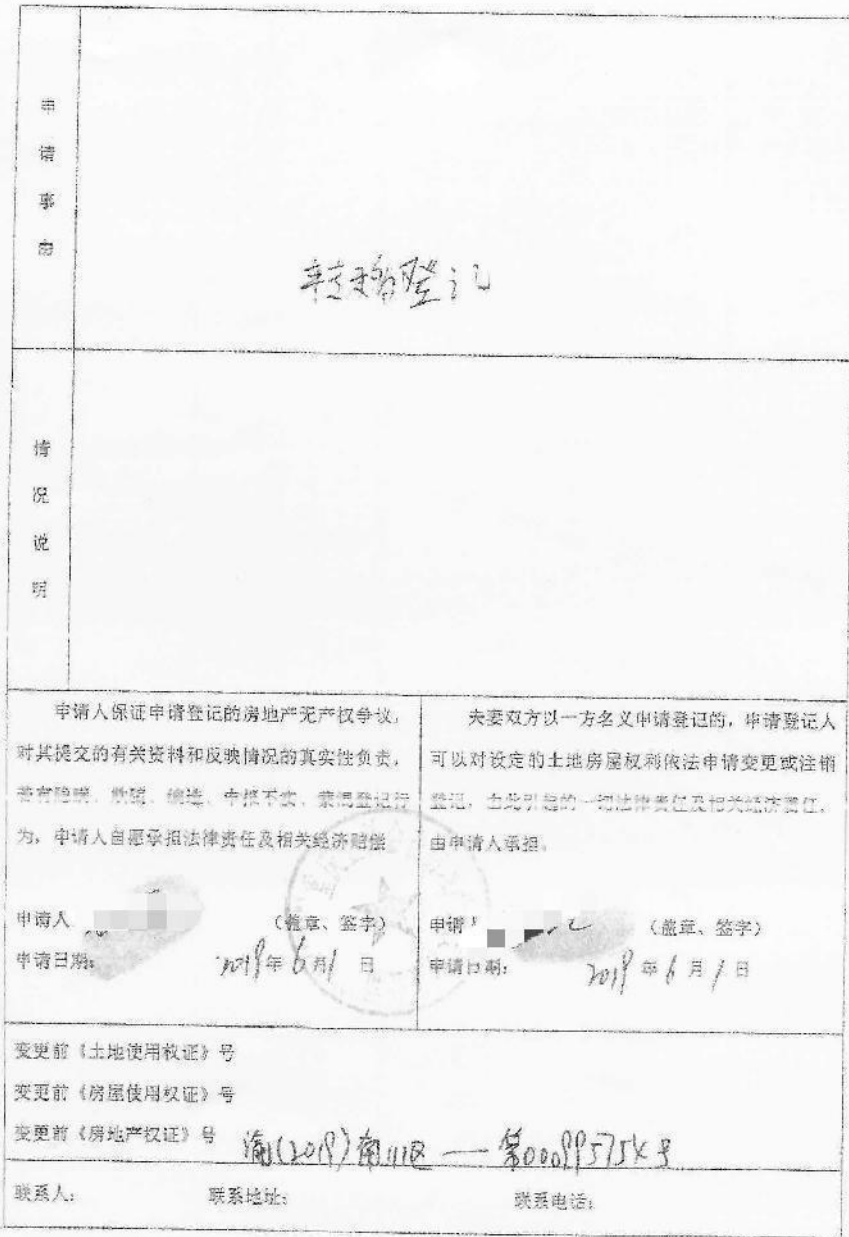 申请事由
转移登记
情况说明
申请人保证申请登记的房地产无产权争议，
对其提交的有关资料和反映情况的真实性负责，
若有隐瞒、欺骗、编造、申报不实、蒙混登记行
为，申请人自愿承担法律责任及相关经济赔偿
申请人 (盖章、签字)
申请日期： 2019年6月1日
夫妻双方以一方名义申请登记的，申请登记人
可以对设定的土地房屋权利依法申请变更或注销
登记，由此引起的一切法律责任及相关经济责任，
由申请人承担。
申请 (盖章、签字)
申请日期： 2019年6月1日
变更前《土地使用权证》号
变更前《房屋使用权证》号
变更前《房地产权证》号 渝(2019)南川区 — 第
联系人： 联系地址： 联系电话：